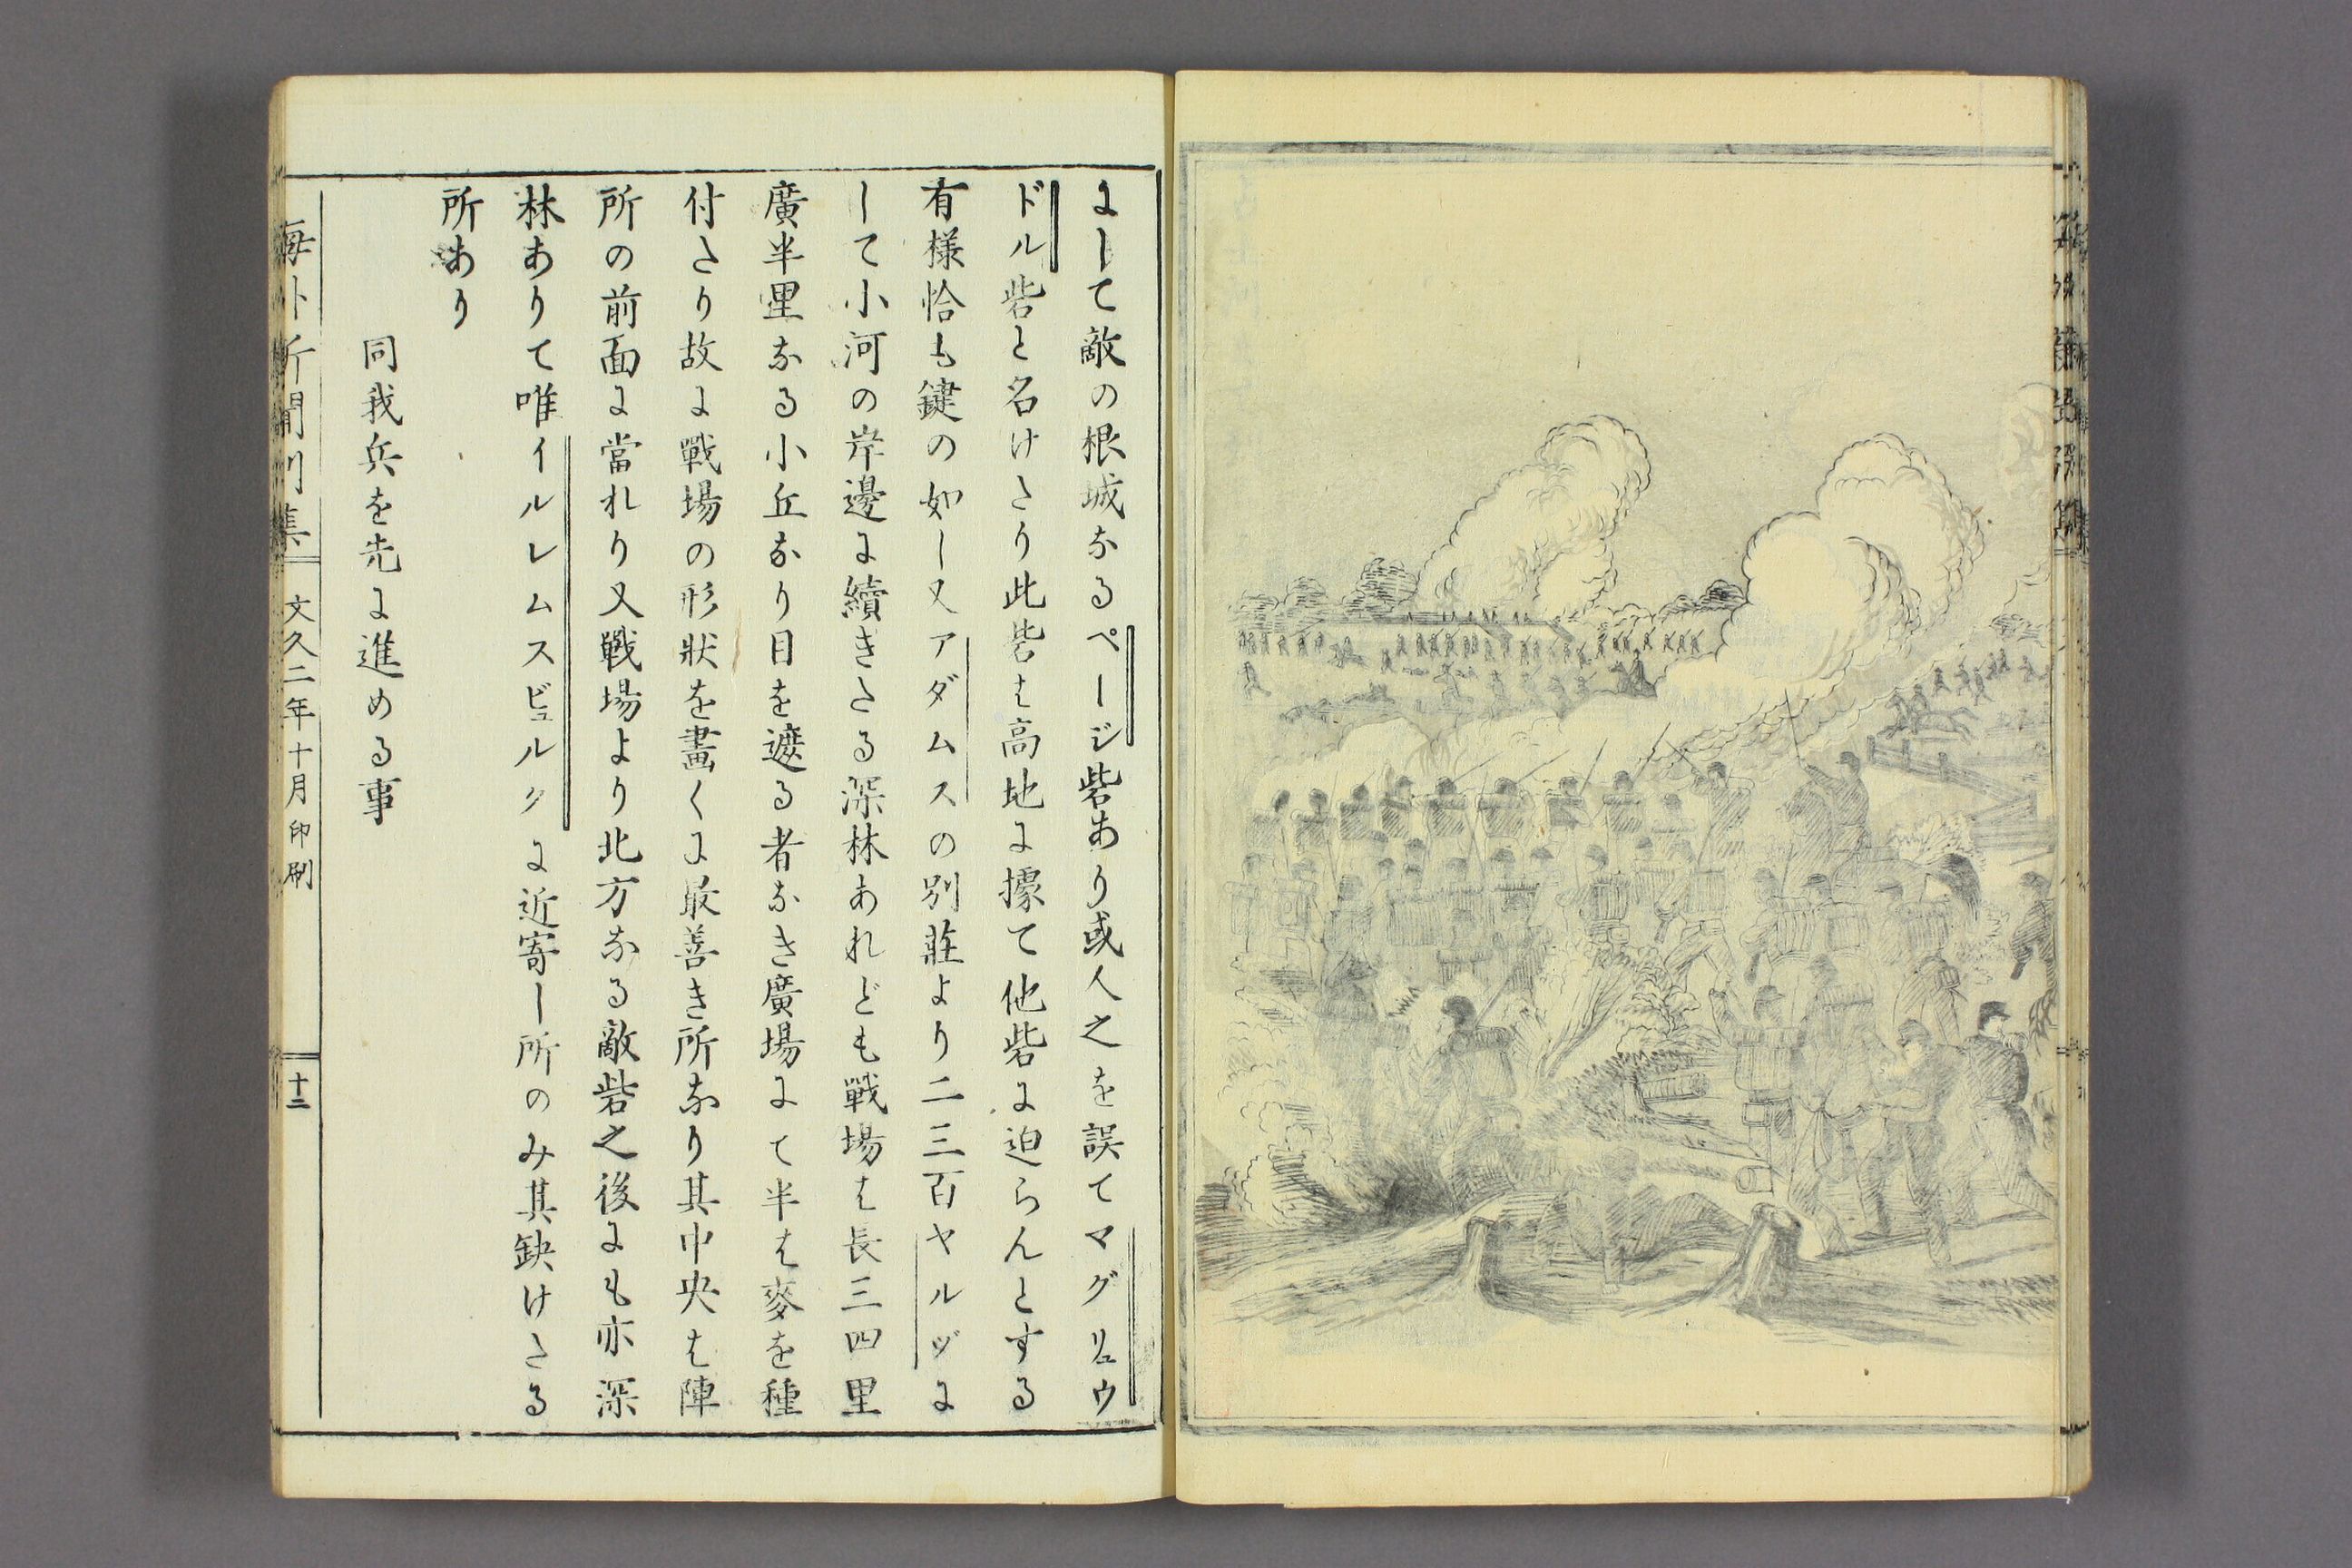 にして敵の根城なるページ砦あり或人之を誤てマグリュウ
ドル砦と名けたり此砦は高地に據て他砦に迫らんとする
有様恰も鍵の如し又アダムスの別莊より二三百ヤルヅに
して小河の岸邊に續きたる深林あれども戰場は長三四里
廣半里なる小丘なり目を遮る者なき廣場にて半は麥を種
付たり故に戰場の形狀を畫くに最善き所なり其中央は陣
所の前面に當れり又戰場より北方なる敵砦之後にも亦深
林ありて唯イルレムスビュルクに近寄し所のみ其缺けたる
所あり
同我兵を先に進める事
海外新聞別集
文久二年十月印刷
十二